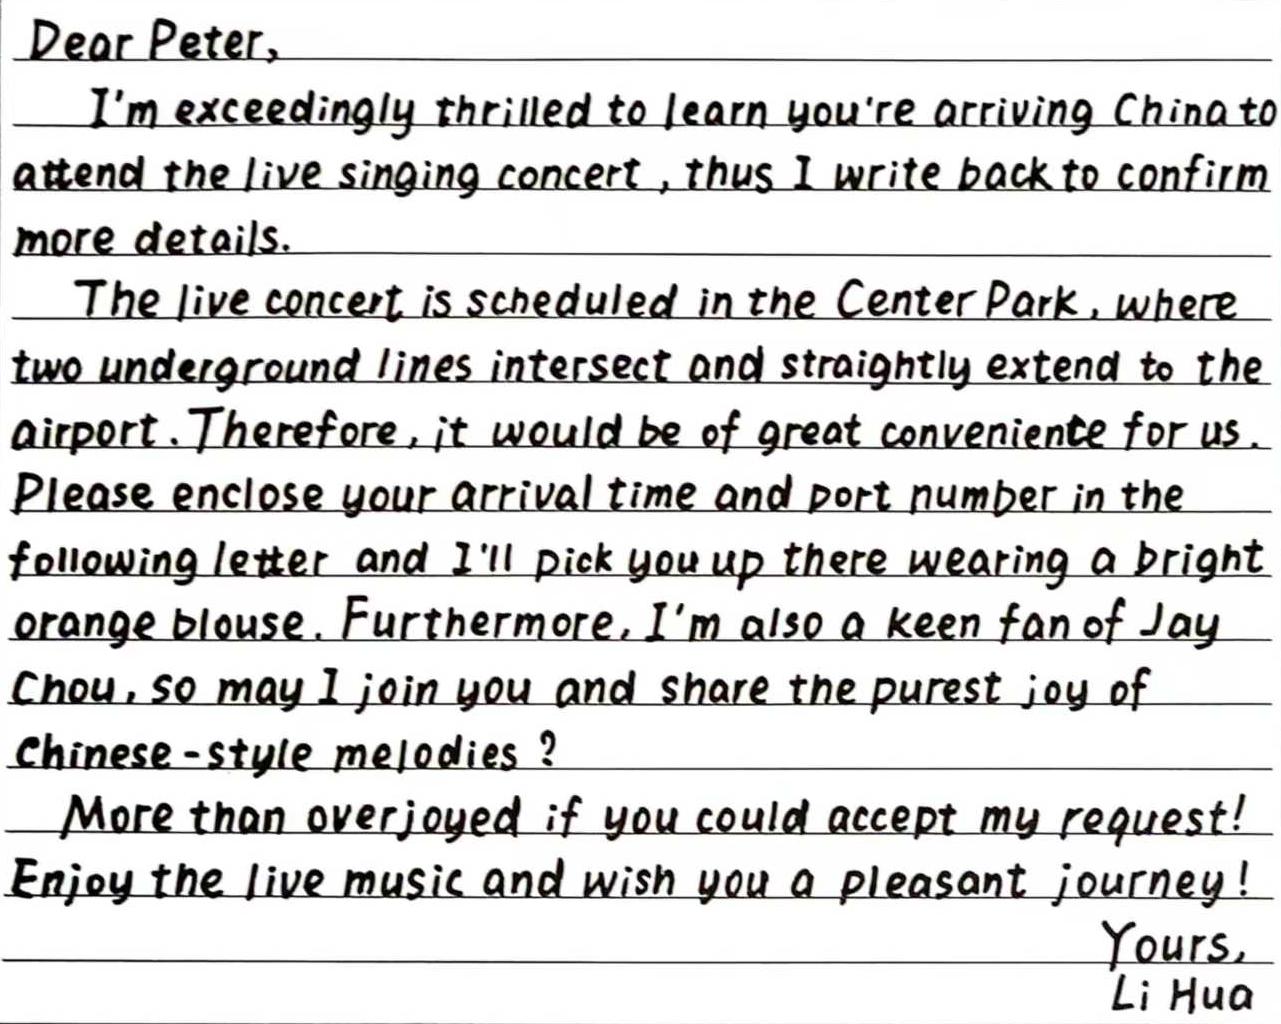 Dear Peter,
I'm exceedingly thrilled to learn you're arriving China to
attend the live singing concert, thus I write back to confirm
more details.
The live concert is scheduled in the Center Park, where
two underground lines intersect and straightly extend to the
airport. Therefore, it would be of great conveniente for us.
Please enclose your arrival time and port number in the
following letter and I'll pick you up there wearing a bright
orange blouse. Furthermore, I'm also a keen fan of Jay
Chou, so may I join you and share the purest joy of
Chinese-style melodies?
More than overjoyed if you could accept my request!
Enjoy the live music and wish you a pleasant journey!
Yours,
Li Hua